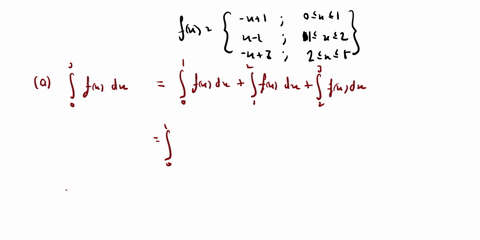 f(x) = { -x+1 ; 0≤x≤1
x-1 ; 1≤x≤2
-x+3 ; 2≤x≤5 }
(a) ∫₀³ f(x) dx = ∫₀¹ f(x) dx + ∫₁² f(x) dx + ∫₂³ f(x) dx
= ∫₀¹